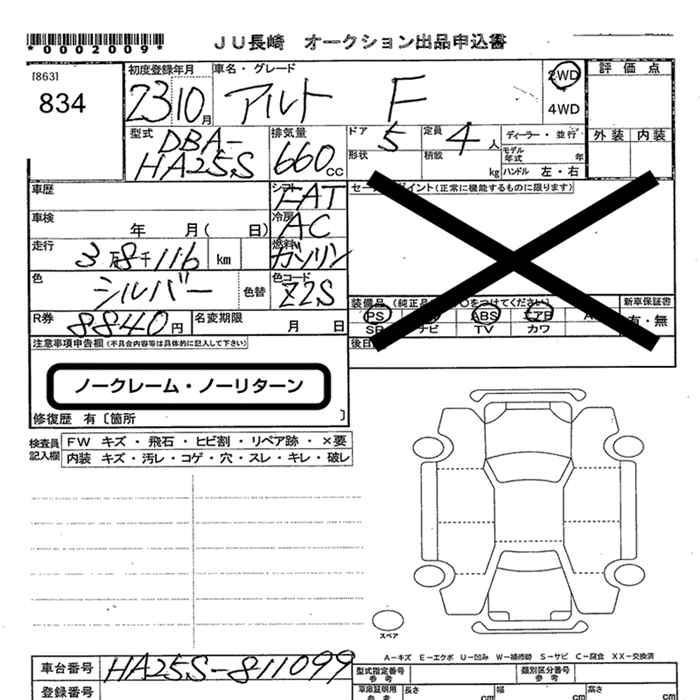 *0002009*
JU長崎 オークション出品申込書
[863]
834
初度登録年月
23 10月
車名・グレード
アルト F
2WD
4WD
評価点
外装 内装
型式
DBA-
HA25S
排気量
660cc
ドア
5
定員
4人
形状
積載
kg
ディーラー・並行
モデル年式 年
ハンドル 左・右
車歴
シフト
FAT
車検
年 月( 日)
冷房
AC
走行
3万8千116 km
燃料
ガソリン
色
シルバー
色替
色コード
Z2S
R券
8840円
名変期限
月 日
セー ポイント(正常に機能するものに限ります)
装備品(純正品 ○をつけてください)
新車保証書
PS ABS エアB
SR ナビ TV カワ
有・無
後日
注意事項申告欄(不具合内容等は具体的に記入して下さい)
ノークレーム・ノーリターン
修復歴 有〔箇所 〕
検査員記入欄
FW キズ・飛石・ヒビ割・リペア跡・×要
内装 キズ・汚レ・コゲ・穴・スレ・キレ・破レ
スペア
A−キズ E−エクボ U−凹み W−補修跡 S−サビ C−腐食 XX−交換済
車台番号
HA25S-811099
型式指定番号
参考
類別区分番号
参考
登録番号
車庫証明用
参考
長さ cm
幅 cm
高さ cm